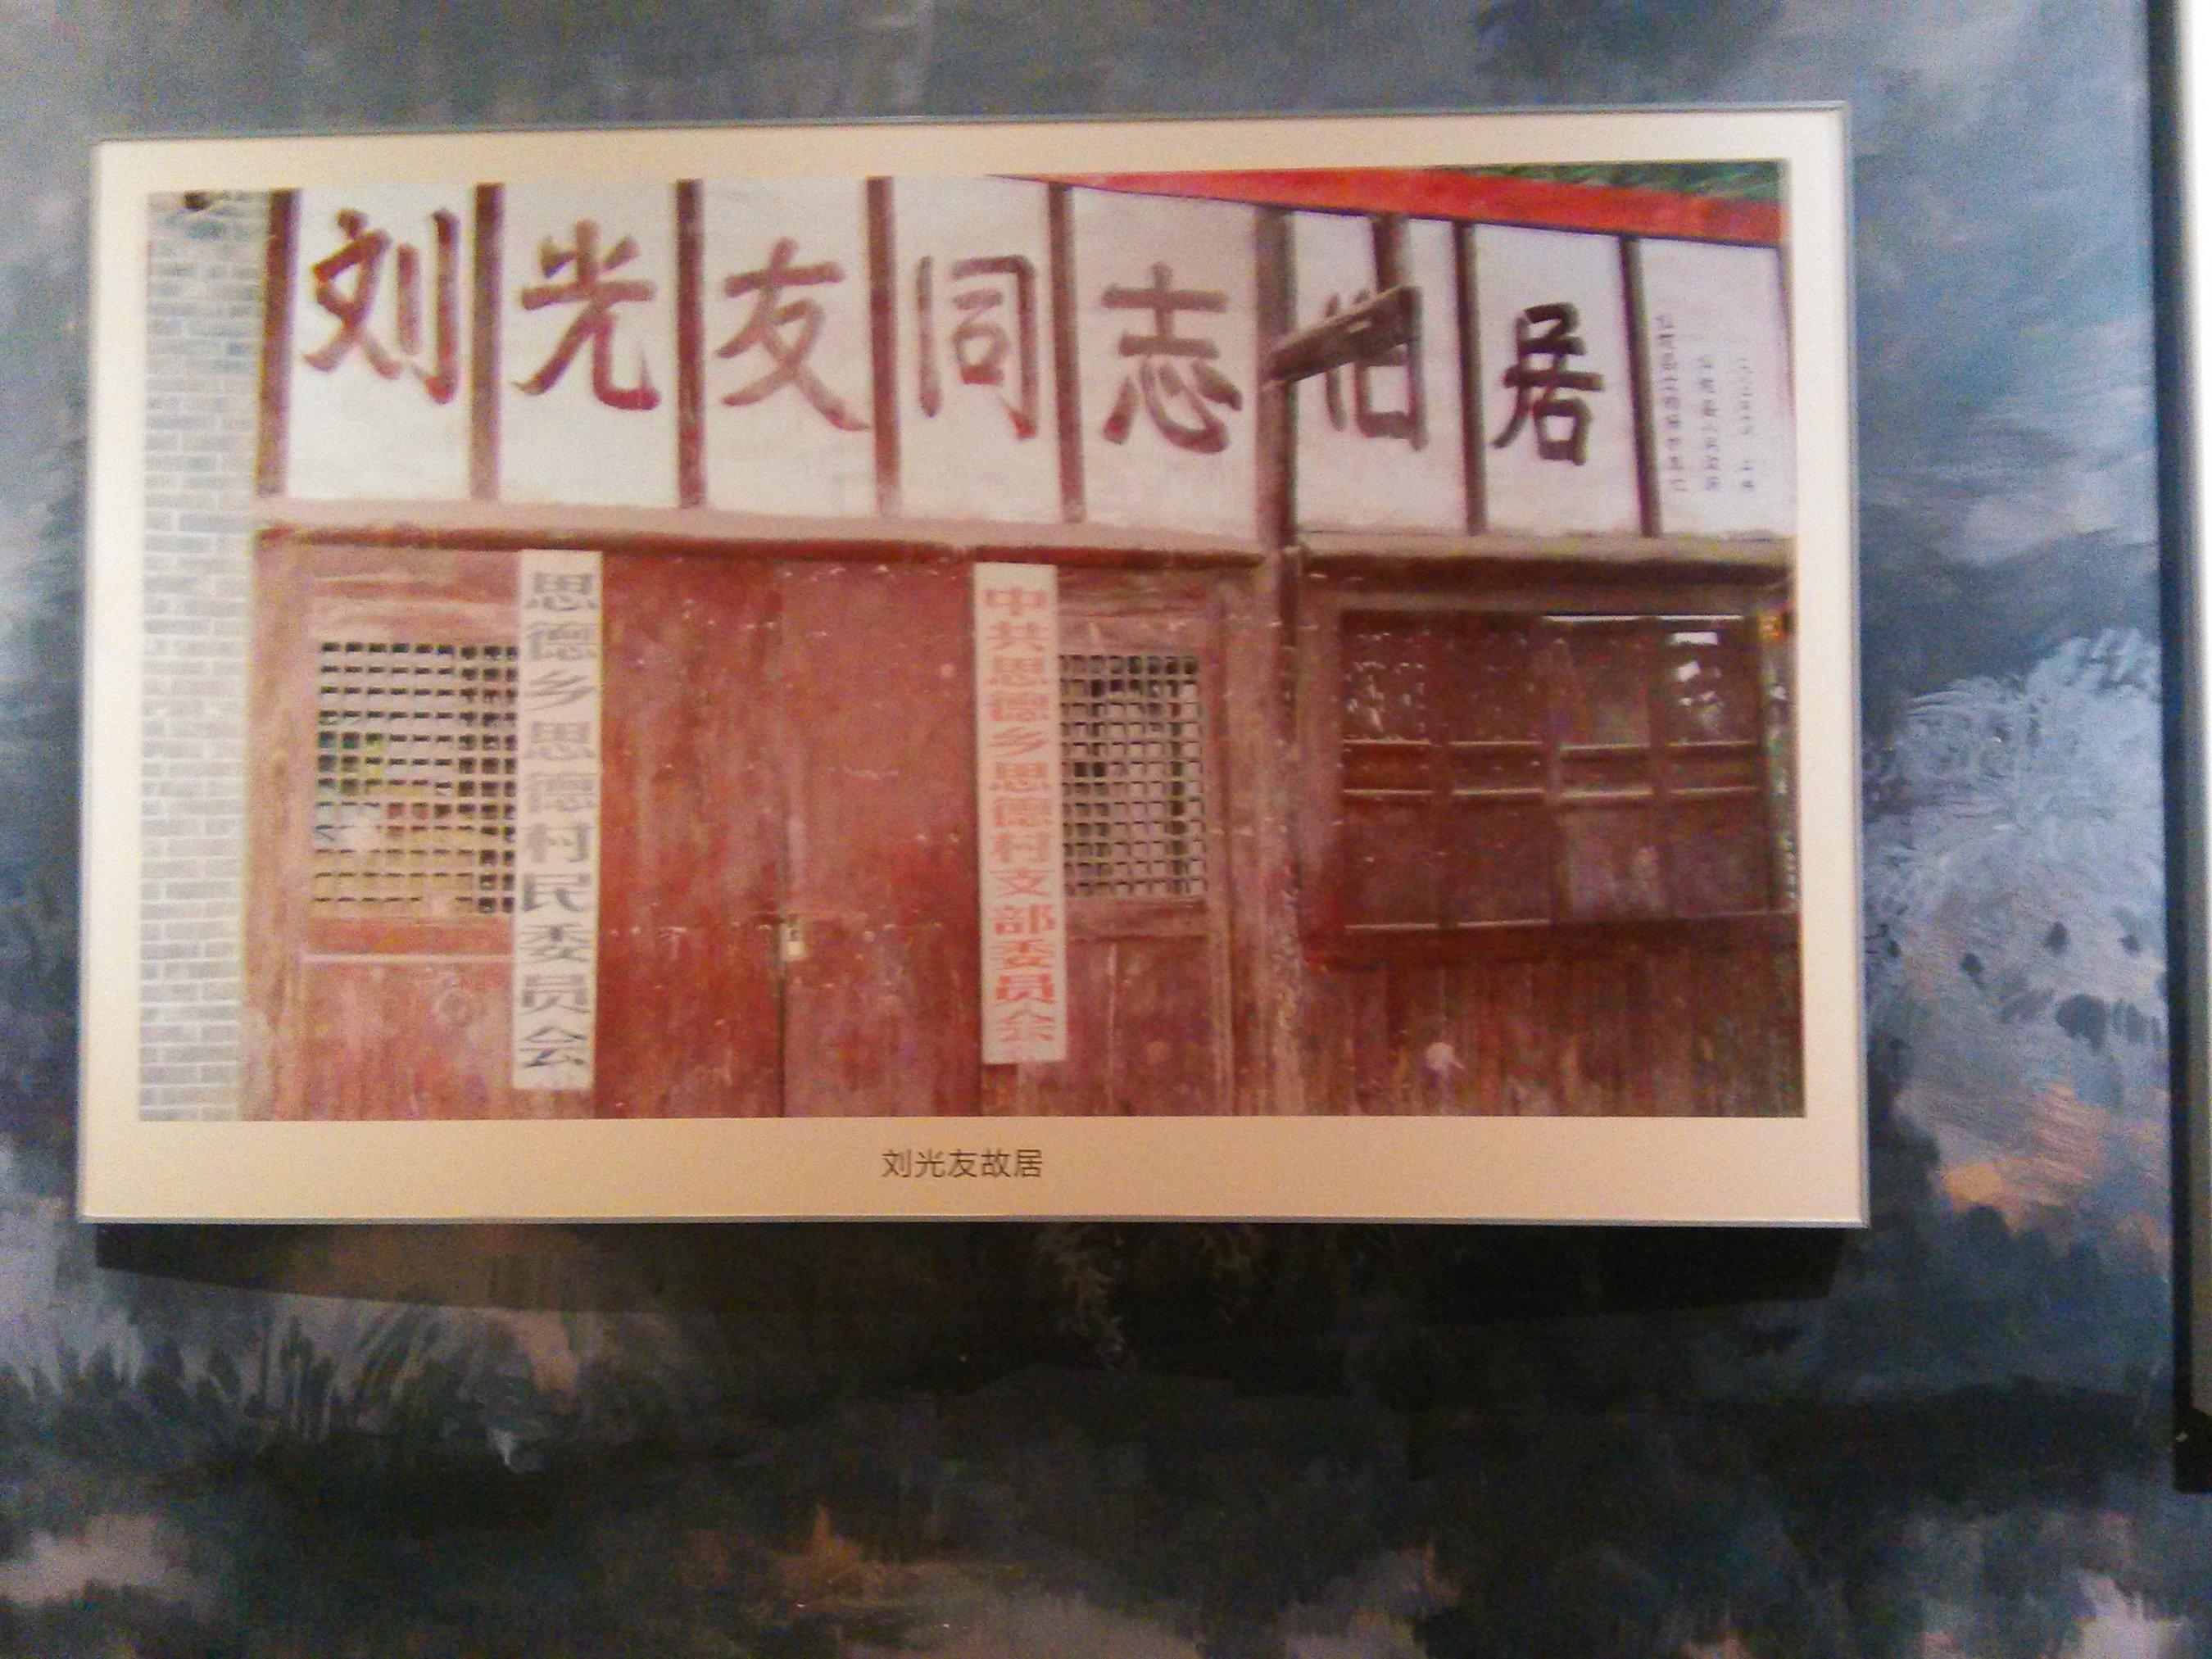 刘光友同志旧居
思德乡思德村民委员会
中共思德乡思德村支部委员会
刘光友故居